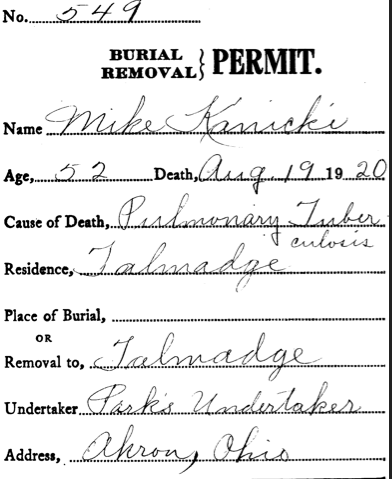 No. 549
BURIAL
REMOVAL } PERMIT.
Name Mike Kanicki
Age, 52 Death, Aug 19 1920
Cause of Death, Pulmonary Tuber
culosis
Residence, Talmadge
Place of Burial,
OR
Removal to, Talmadge
Undertaker Park's Undertaker
Address, Akron, Ohio